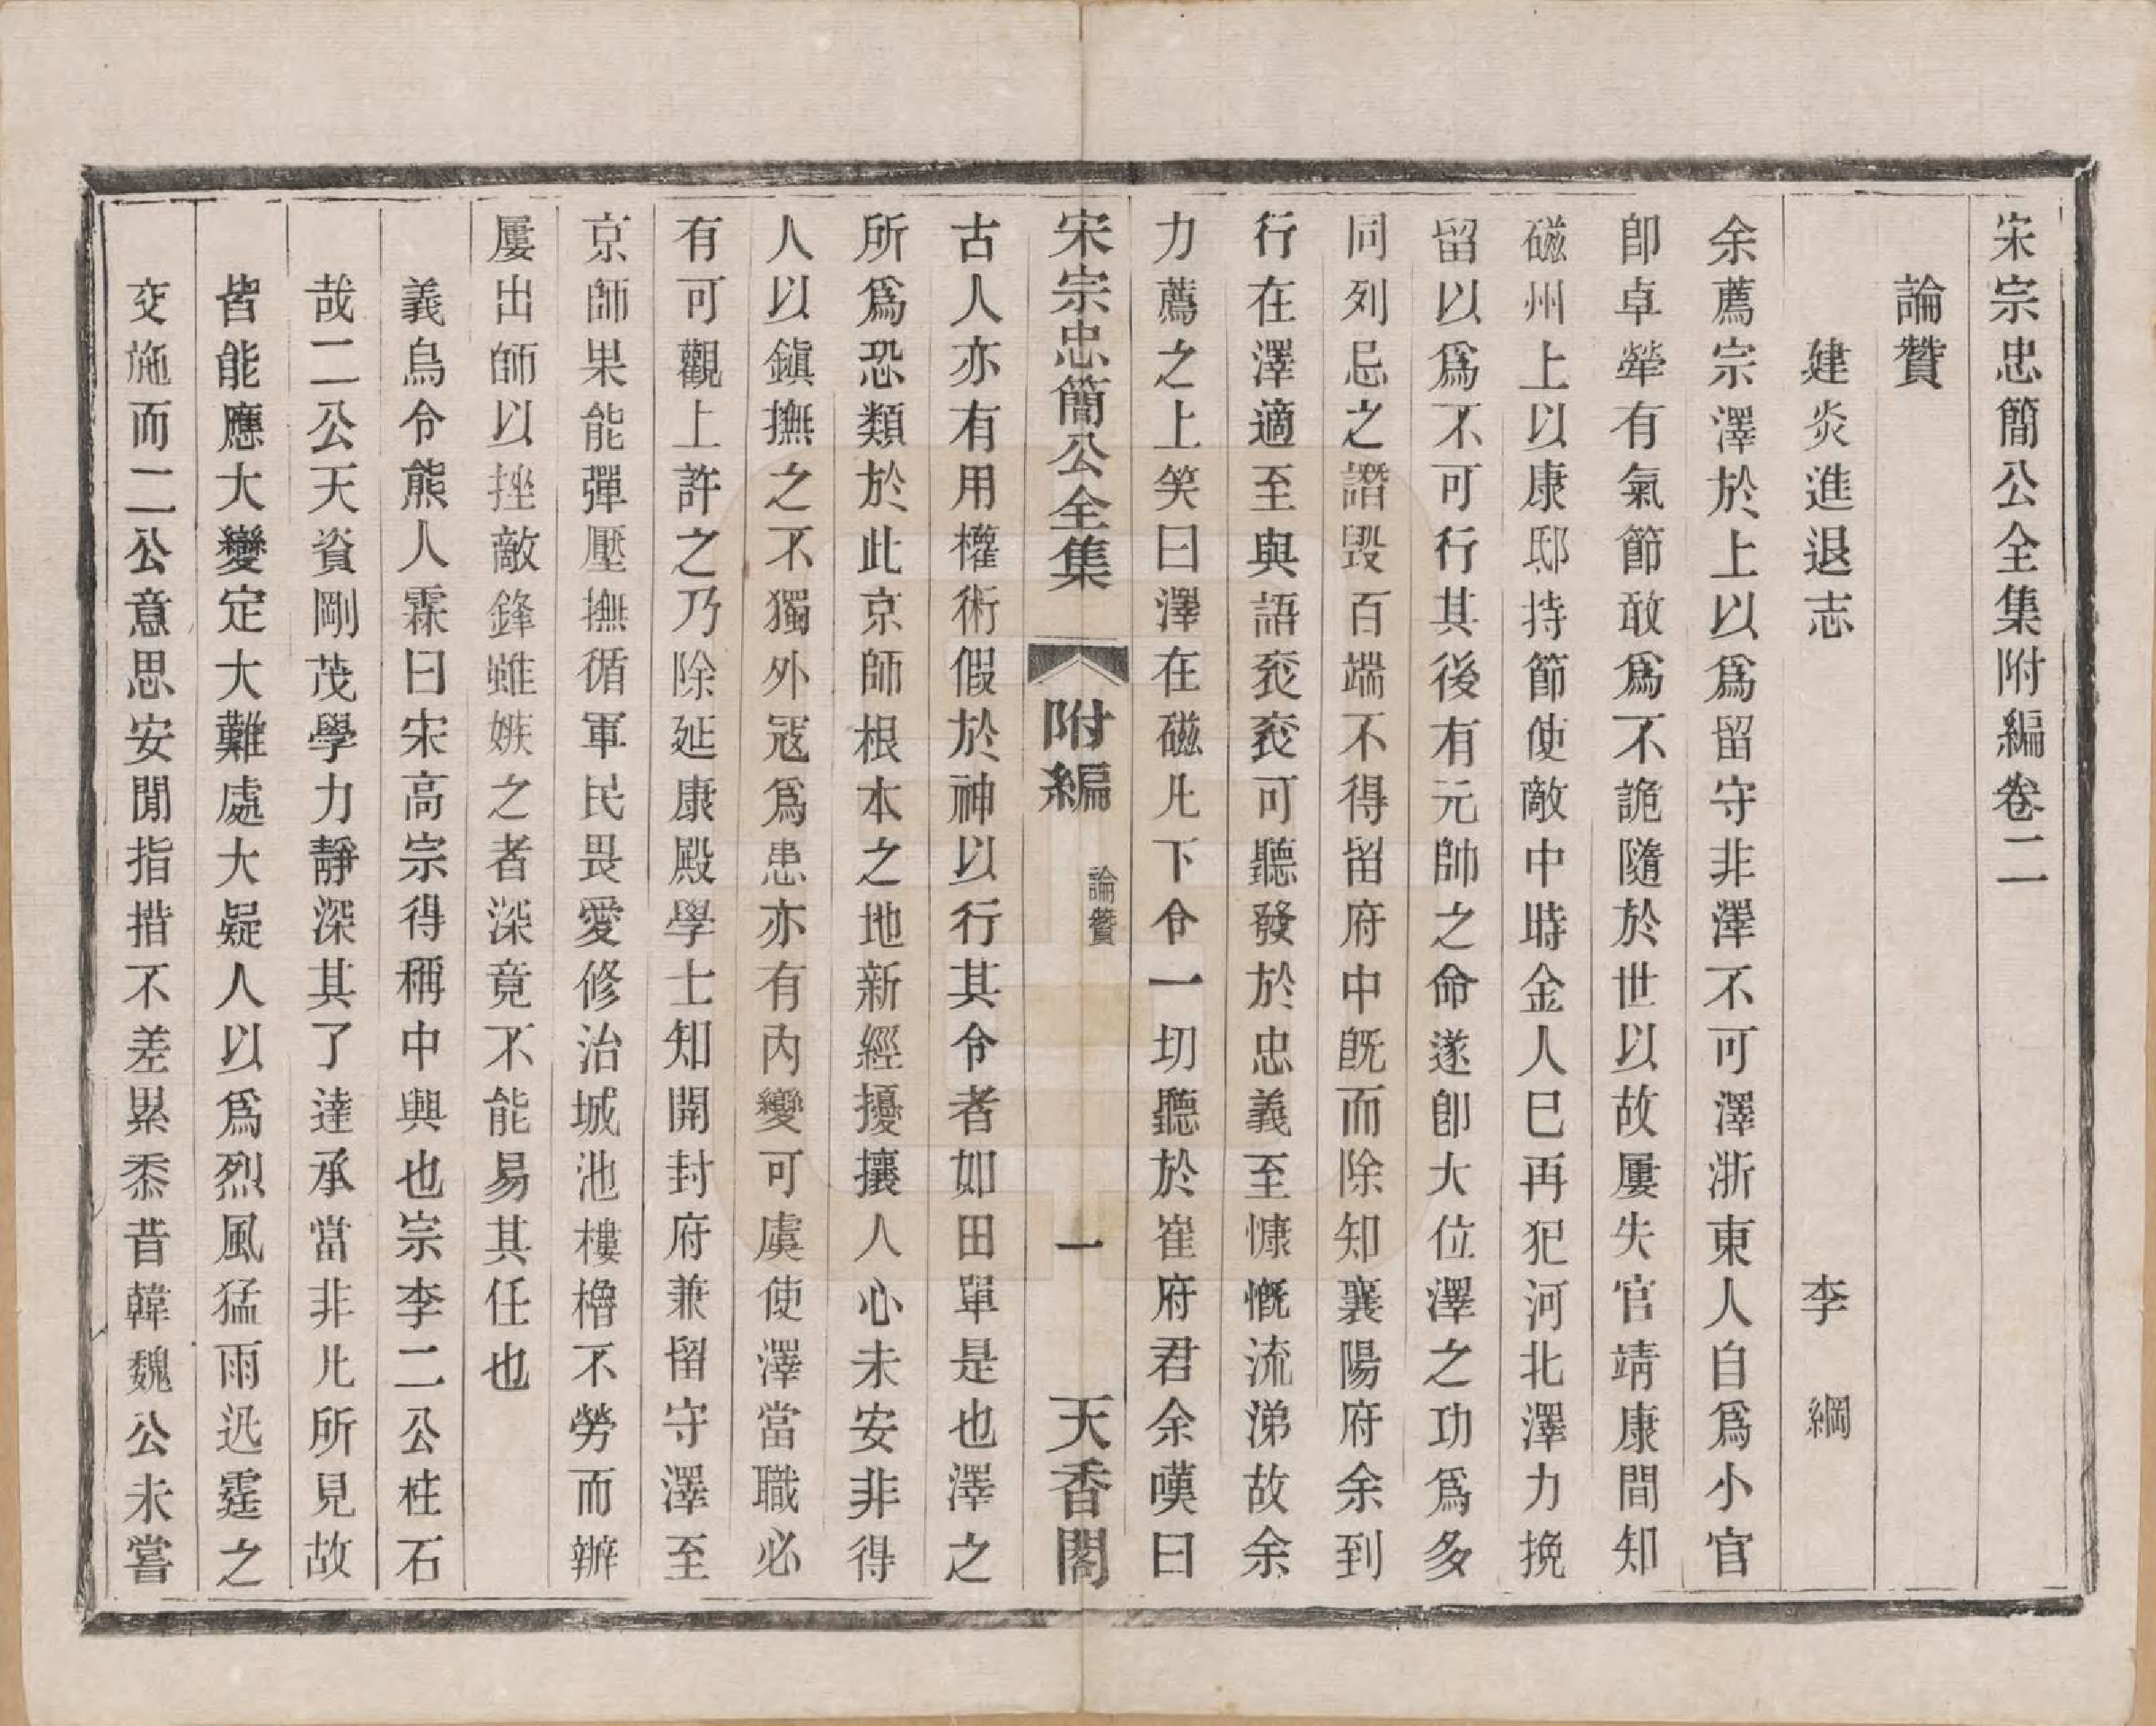 宋宗忠簡公全集附編卷二
論贊
建炎進退志　李　綱
余薦宗澤於上以爲留守非澤不可澤浙東人自爲小官
卽卓犖有氣節敢爲不詭隨於世以故屢失官靖康間知
磁州上以康邸持節使敵中時金人巳再犯河北澤力挽
留以爲不可行其後有元帥之命遂卽大位澤之功爲多
同列忌之譖毀百端不得留府中旣而除知襄陽府余到
行在澤適至與語袞袞可聽發於忠義至慷慨流涕故余
力薦之上笑曰澤在磁凡下令一切聽於崔府君余嘆曰
宋宗忠簡公全集　附編　論贊　一　天香閣
古人亦有用權術假於神以行其令者如田單是也澤之
所爲恐類於此京師根本之地新經擾攘人心未安非得
人以鎭撫之不獨外寇爲患亦有內變可虞使澤當職必
有可觀上許之乃除延康殿學士知開封府兼留守澤至
京師果能彈壓撫循軍民畏愛修治城池樓櫓不勞而辦
屢出師以挫敵鋒雖嫉之者深竟不能易其任也
義烏令熊人霖曰宋高宗得稱中興也宗李二公柱石
哉二公天資剛茂學力靜深其了達承當非凡所見故
皆能應大變定大難處大疑人以爲烈風猛雨迅霆之
交施而二公意思安閒指揩不差累黍昔韓魏公未嘗